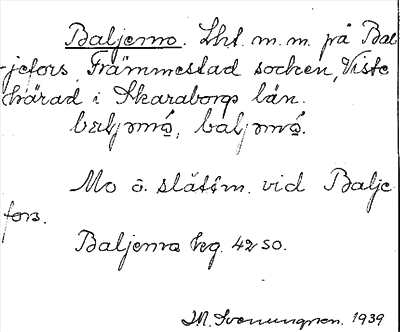 Baljemo. Lht. m.m. på Bal-
jefors, Främmestad socken, Viste
härad i Skaraborgs län.
baljmo, baljmo.
Mo o. slättm. vid Balje
fors.
Baljemo hg. 4250.
1939